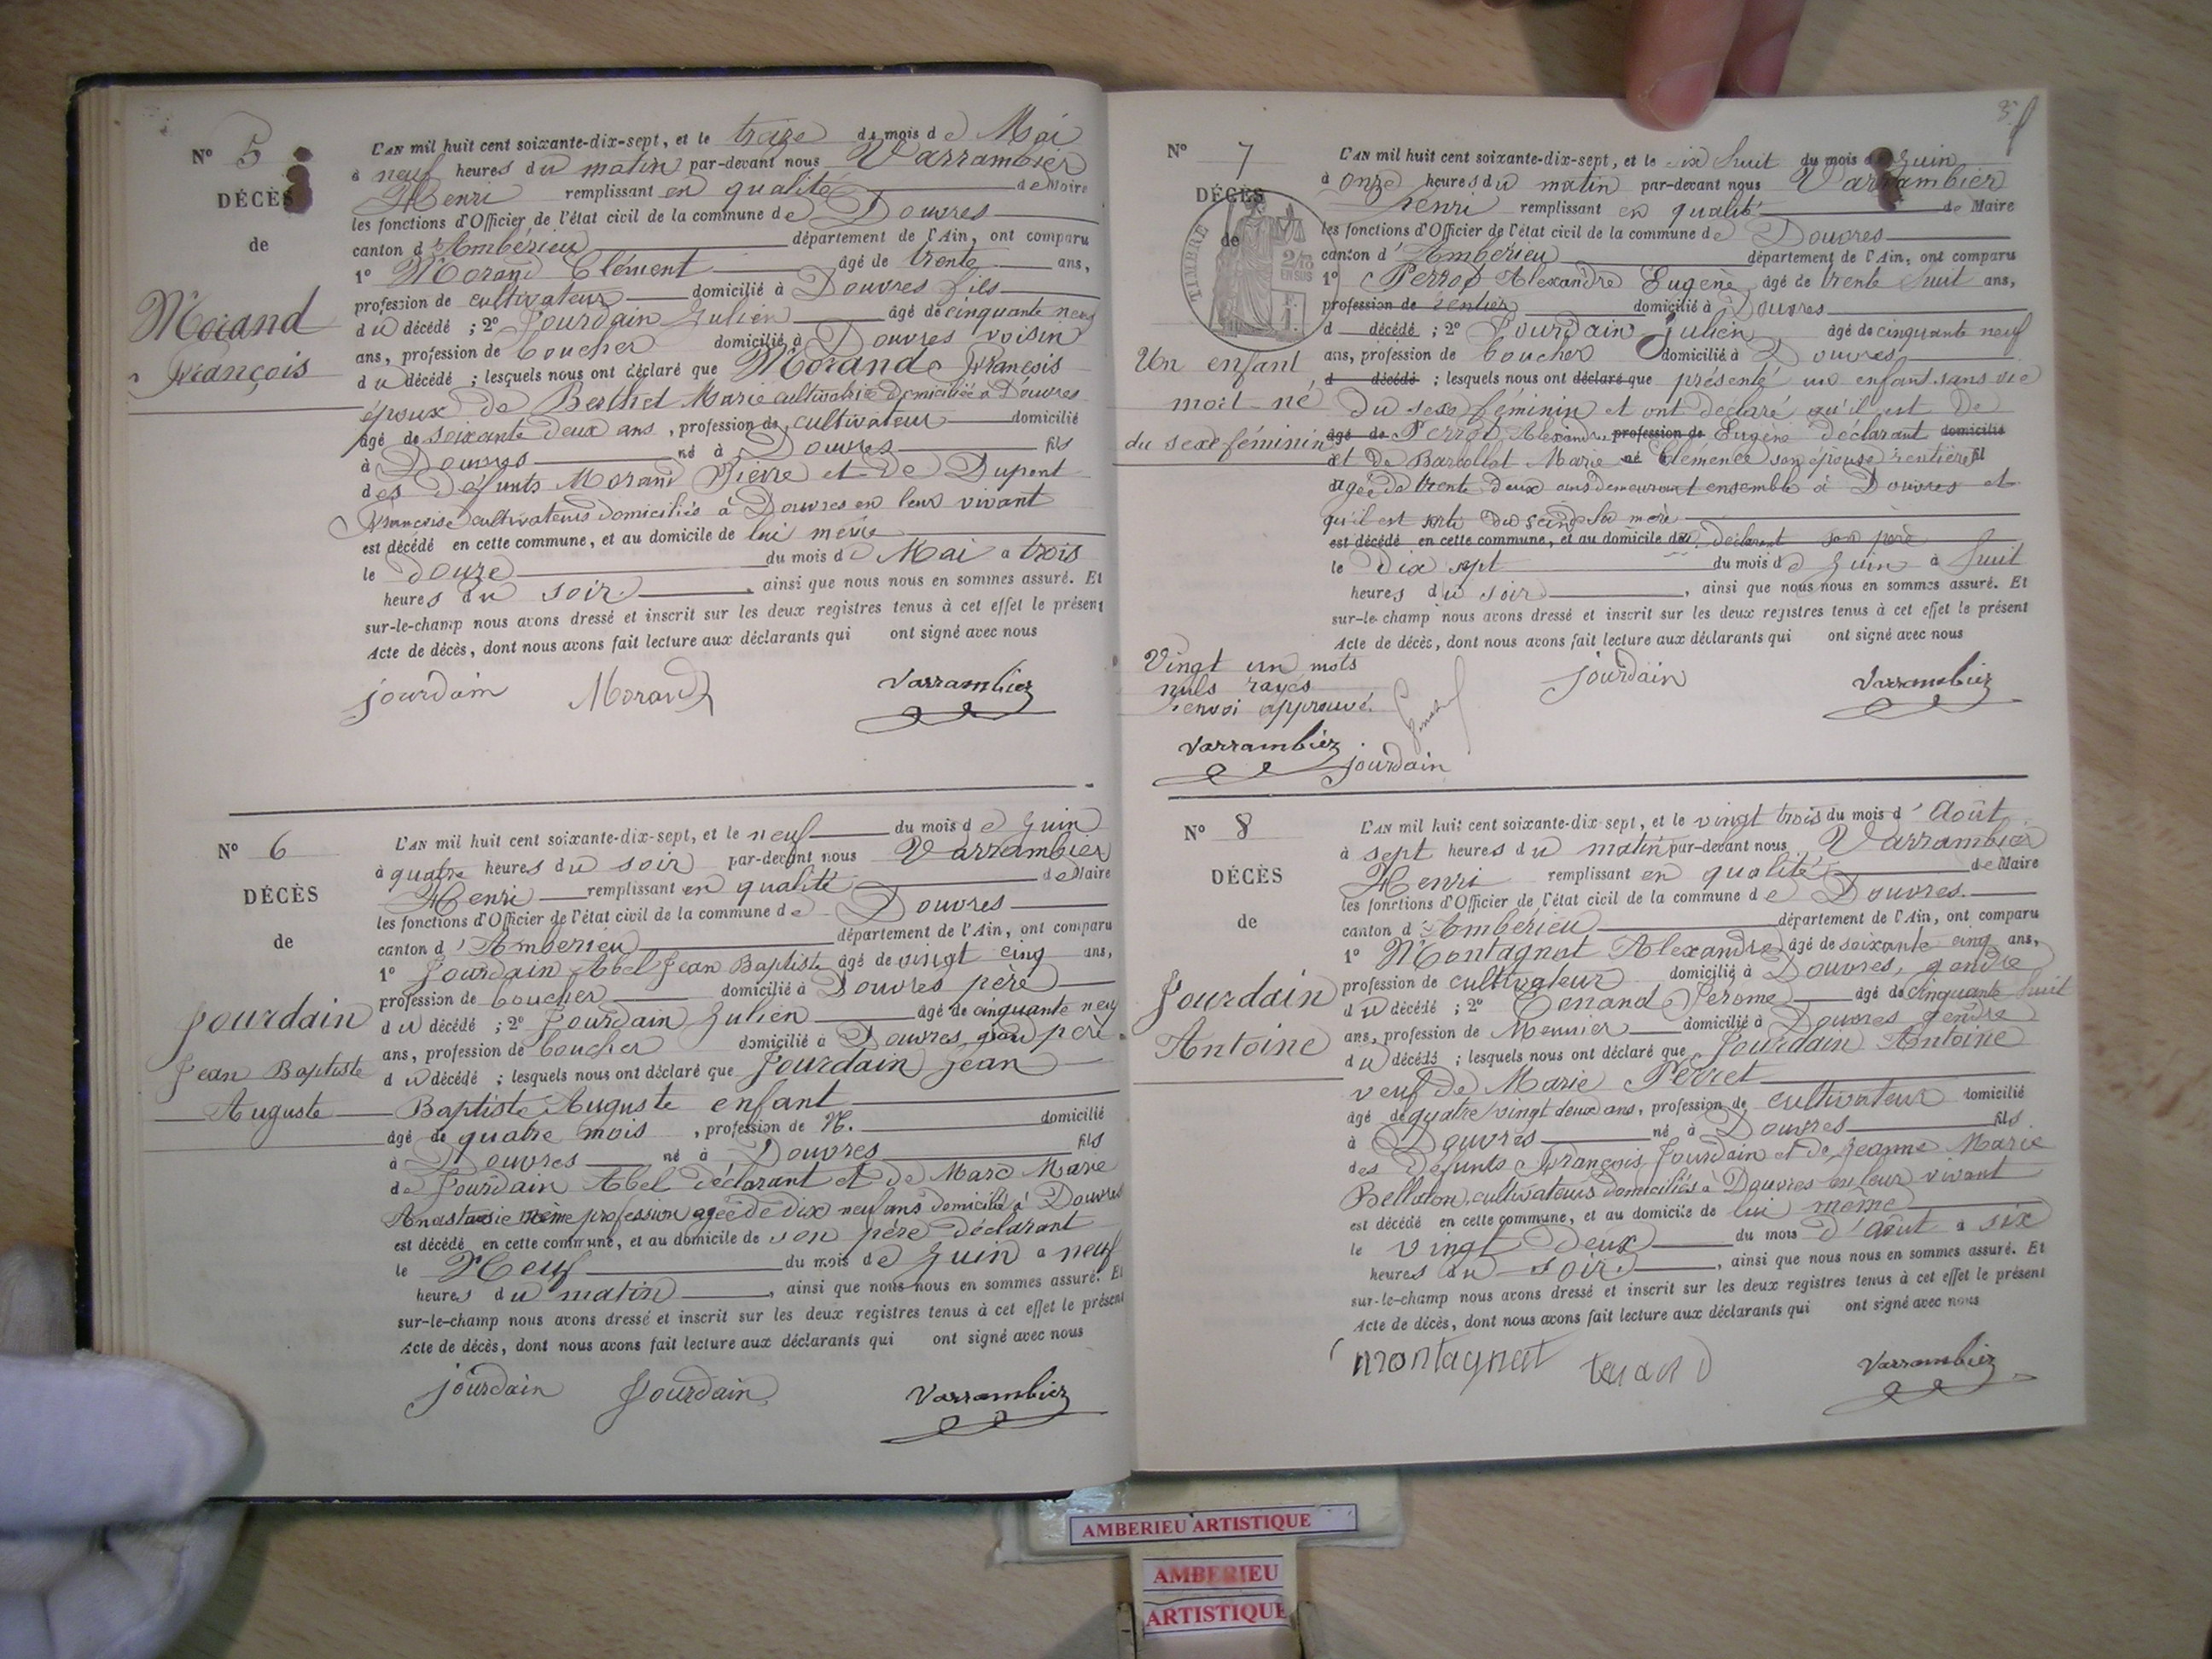 N° 5
DÉCÈS
de
Morand
François
L'AN mil huit cent soixante-dix-sept, et le treize du mois de Mai
à neuf heures du matin par-devant nous Varrambier
Henri remplissant en qualité de Maire
les fonctions d'Officier de l'état civil de la commune de Douvres
canton d'Ambérieu département de l'Ain, ont comparu
1° Morand Clément âgé de trente ans,
profession de cultivateur domicilié à Douvres fils
du décédé ; 2° Jourdain Julien âgé de cinquante neuf
ans, profession de boucher domicilié à Douvres voisin
du décédé ; lesquels nous ont déclaré que Morand François
époux de Berthet Marie cultivatrice domiciliée à Douvres
âgé de soixante deux ans, profession de cultivateur domicilié
à Douvres né à Douvres fils
des défunts Morand Pierre et de Dupont
Françoise cultivateurs domiciliés à Douvres en leur vivant
est décédé en cette commune, et au domicile de lui même
le douze du mois de Mai à trois
heures du soir, ainsi que nous nous en sommes assuré. Et
sur-le-champ nous avons dressé et inscrit sur les deux registres tenus à cet effet le présent
Acte de décès, dont nous avons fait lecture aux déclarants qui ont signé avec nous
jourdain Morand Varrambier
N° 6
DÉCÈS
de
Jourdain
Jean Baptiste
Auguste
L'AN mil huit cent soixante-dix-sept, et le neuf du mois de Juin
à quatre heures du soir par-devant nous Varrambier
Henri remplissant en qualité de Maire
les fonctions d'Officier de l'état civil de la commune de Douvres
canton d'Amberieu département de l'Ain, ont comparu
1° Jourdain Abel Jean Baptiste âgé de vingt cinq ans,
profession de boucher domicilié à Douvres père
du décédé ; 2° Jourdain Julien âgé de cinquante neuf
ans, profession de boucher domicilié à Douvres grand père
du décédé ; lesquels nous ont déclaré que Jourdain Jean
Baptiste Auguste enfant
âgé de quatre mois, profession de N. domicilié
à Douvres né à Douvres fils
de Jourdain Abel déclarant et de Marc Marie
Anastasie même profession agée de dix neuf ans domicilié à Douvres
est décédé en cette commune, et au domicile de son père déclarant
le Neuf du mois de Juin à neuf
heures du matin, ainsi que nous nous en sommes assuré. Et
sur-le-champ nous avons dressé et inscrit sur les deux registres tenus à cet effet le présent
Acte de décès, dont nous avons fait lecture aux déclarants qui ont signé avec nous
jourdain Jourdain Varrambier
N° 7
DÉCÈS
de
TIMBRE
2/10
EN SUS
Un enfant
mort-né
du sexe féminin
L'AN mil huit cent soixante-dix-sept, et le dix huit du mois de Juin
à onze heures du matin par-devant nous Varrambier
henri remplissant en qualité de Maire
les fonctions d'Officier de l'état civil de la commune de Douvres
canton d'Ambérieu département de l'Ain, ont comparu
1° Perrot Alexandre Eugène âgé de trente huit ans,
profession de rentier domicilié à Douvres
d décédé ; 2° Jourdain Julien âgé de cinquante neuf
ans, profession de boucher domicilié à Douvres
d décédé ; lesquels nous ont déclaré que présenté un enfant sans vie
du sexe féminin et ont déclaré qu'il est de
âgé de Perrot Alexandre profession de Eugène déclarant domicilié
et de Marie né Clémence son épouse rentière fil
agée de trente deux ans demeurant ensemble à Douvres et
qu'il est sorti du sein de sa mère
est décédé en cette commune, et au domicile du déclarant son père
le dix sept du mois de Juin à huit
heures du soir, ainsi que nous nous en sommes assuré. Et
sur-le-champ nous avons dressé et inscrit sur les deux registres tenus à cet effet le présent
Acte de décès, dont nous avons fait lecture aux déclarants qui ont signé avec nous
Vingt un mots
nuls rayés
renvoi approuvé.
jourdain Varrambier
Varrambier jourdain
N° 8
DÉCÈS
de
Jourdain
Antoine
L'AN mil huit cent soixante-dix-sept, et le vingt trois du mois d'Août
à sept heures du matin par-devant nous Varrambier
Henri remplissant en qualité de Maire
les fonctions d'Officier de l'état civil de la commune de Douvres.
canton d'Ambérieu département de l'Ain, ont comparu
1° Montagnat Alexandre âgé de soixante cinq ans,
profession de cultivateur domicilié à Douvres, gendre
du décédé ; 2° Tenand Jerome âgé de cinquante huit
ans, profession de Meunier domicilié à Douvres gendre
du décédé ; lesquels nous ont déclaré que Jourdain Antoine
veuf de Marie Perret
âgé de quatre vingt deux ans, profession de cultivateur domicilié
à Douvres né à Douvres fils
des défunts François Jourdain et de Jeanne Marie
Bellaton cultivateurs domiciliés à Douvres en leur vivant
est décédé en cette commune, et au domicile de lui même
le vingt deux du mois d'août à six
heures du soir, ainsi que nous nous en sommes assuré. Et
sur-le-champ nous avons dressé et inscrit sur les deux registres tenus à cet effet le présent
Acte de décès, dont nous avons fait lecture aux déclarants qui ont signé avec nous
montagnat tenand Varrambier
AMBERIEU ARTISTIQUE
AMBERIEU
ARTISTIQUE